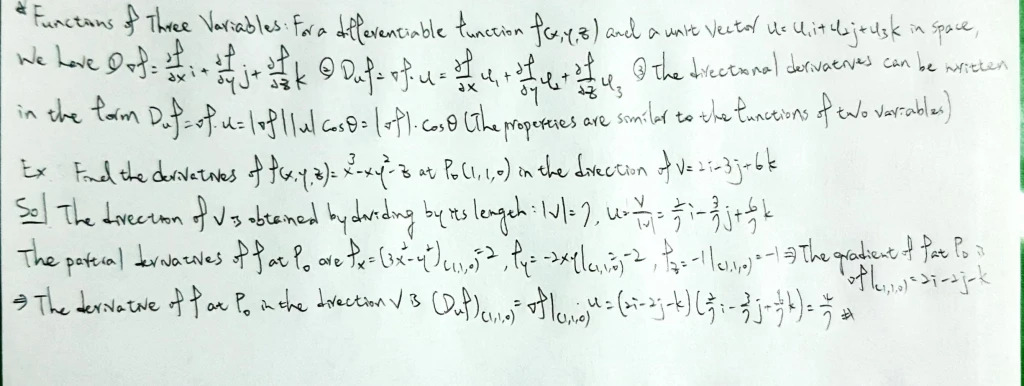 * Functions of Three Variables: For a differentiable function f(x,y,z) and a unit vector u= u₁i+u₂j+u₃k in space,
We have ① ∇f= ∂f/∂x i + ∂f/∂y j + ∂f/∂z k ② Duf= ∇f·u = ∂f/∂x u₁ + ∂f/∂y u₂ + ∂f/∂z u₃ ③ The directional derivatives can be written
in the form Duf=∇f·u=|∇f||u|cosθ=|∇f|·cosθ (The properties are similar to the functions of two variables)
Ex Find the derivatives of f(x,y,z)= x³-xy²-z at P₀(1,1,0) in the direction of V=2i-3j+6k
Sol The direction of V is obtained by dividing by its length: |V|=7, u= V/|V| = 2/7 i - 3/7 j + 6/7 k
The partial derivatives of f at P₀ are fx=(3x²-y²)|(1,1,0)=2, fy=-2xy|(1,1,0)=-2, fz=-1|(1,1,0)=-1 ⇒ The gradient of f at P₀ is
∇f|(1,1,0)=2i-2j-k
⇒ The derivative of f at P₀ in the direction V is (Duf)(1,1,0)= ∇f|(1,1,0)·u=(2i-2j-k)(2/7 i - 3/7 j + 6/7 k)= 4/7 #